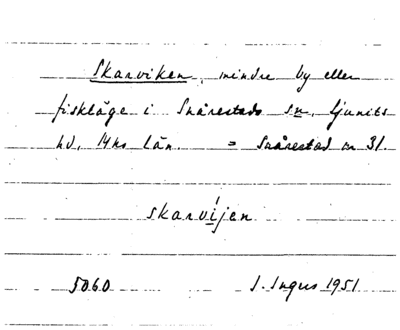 Skarviken, mindre by eller
fiskläge i Snårestads sn, Ljunits
hd, Mhs län. = Snårestad nr 31.
skarvíjen
5060 I. Ingers 1951